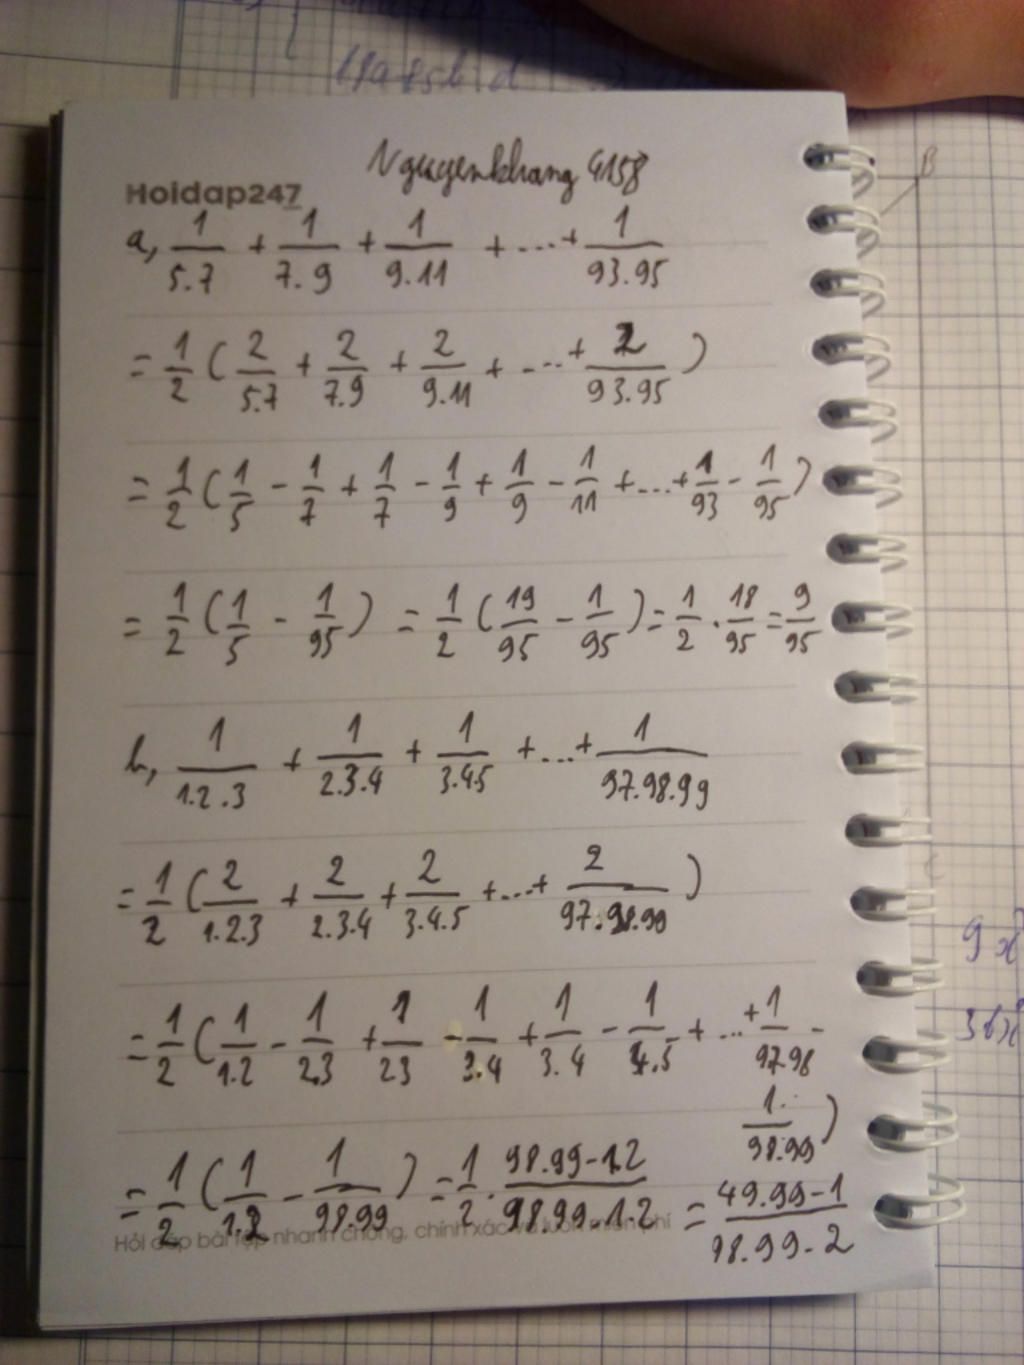 Nguyenkhang 4158
Hoidap247
a, 1/5.7 + 1/7.9 + 1/9.11 + ... + 1/93.95
= 1/2 ( 2/5.7 + 2/7.9 + 2/9.11 + ... + 2/93.95 )
= 1/2 ( 1/5 - 1/7 + 1/7 - 1/9 + 1/9 - 1/11 + ... + 1/93 - 1/95 )
= 1/2 ( 1/5 - 1/95 ) = 1/2 ( 19/95 - 1/95 ) = 1/2 . 18/95 = 9/95
b, 1/1.2.3 + 1/2.3.4 + 1/3.4.5 + ... + 1/97.98.99
= 1/2 ( 2/1.2.3 + 2/2.3.4 + 2/3.4.5 + ... + 2/97.98.99 )
= 1/2 ( 1/1.2 - 1/2.3 + 1/2.3 - 1/3.4 + 1/3.4 - 1/4.5 + ... + 1/97.98 -
1/98.99 )
= 1/2 ( 1/1.2 - 1/98.99 ) = 1/2 . 98.99-1.2/98.99.1.2 = 49.99-1/98.99.2
Hỏi đáp bài tập nhanh chóng, chính xác và luôn miễn phí